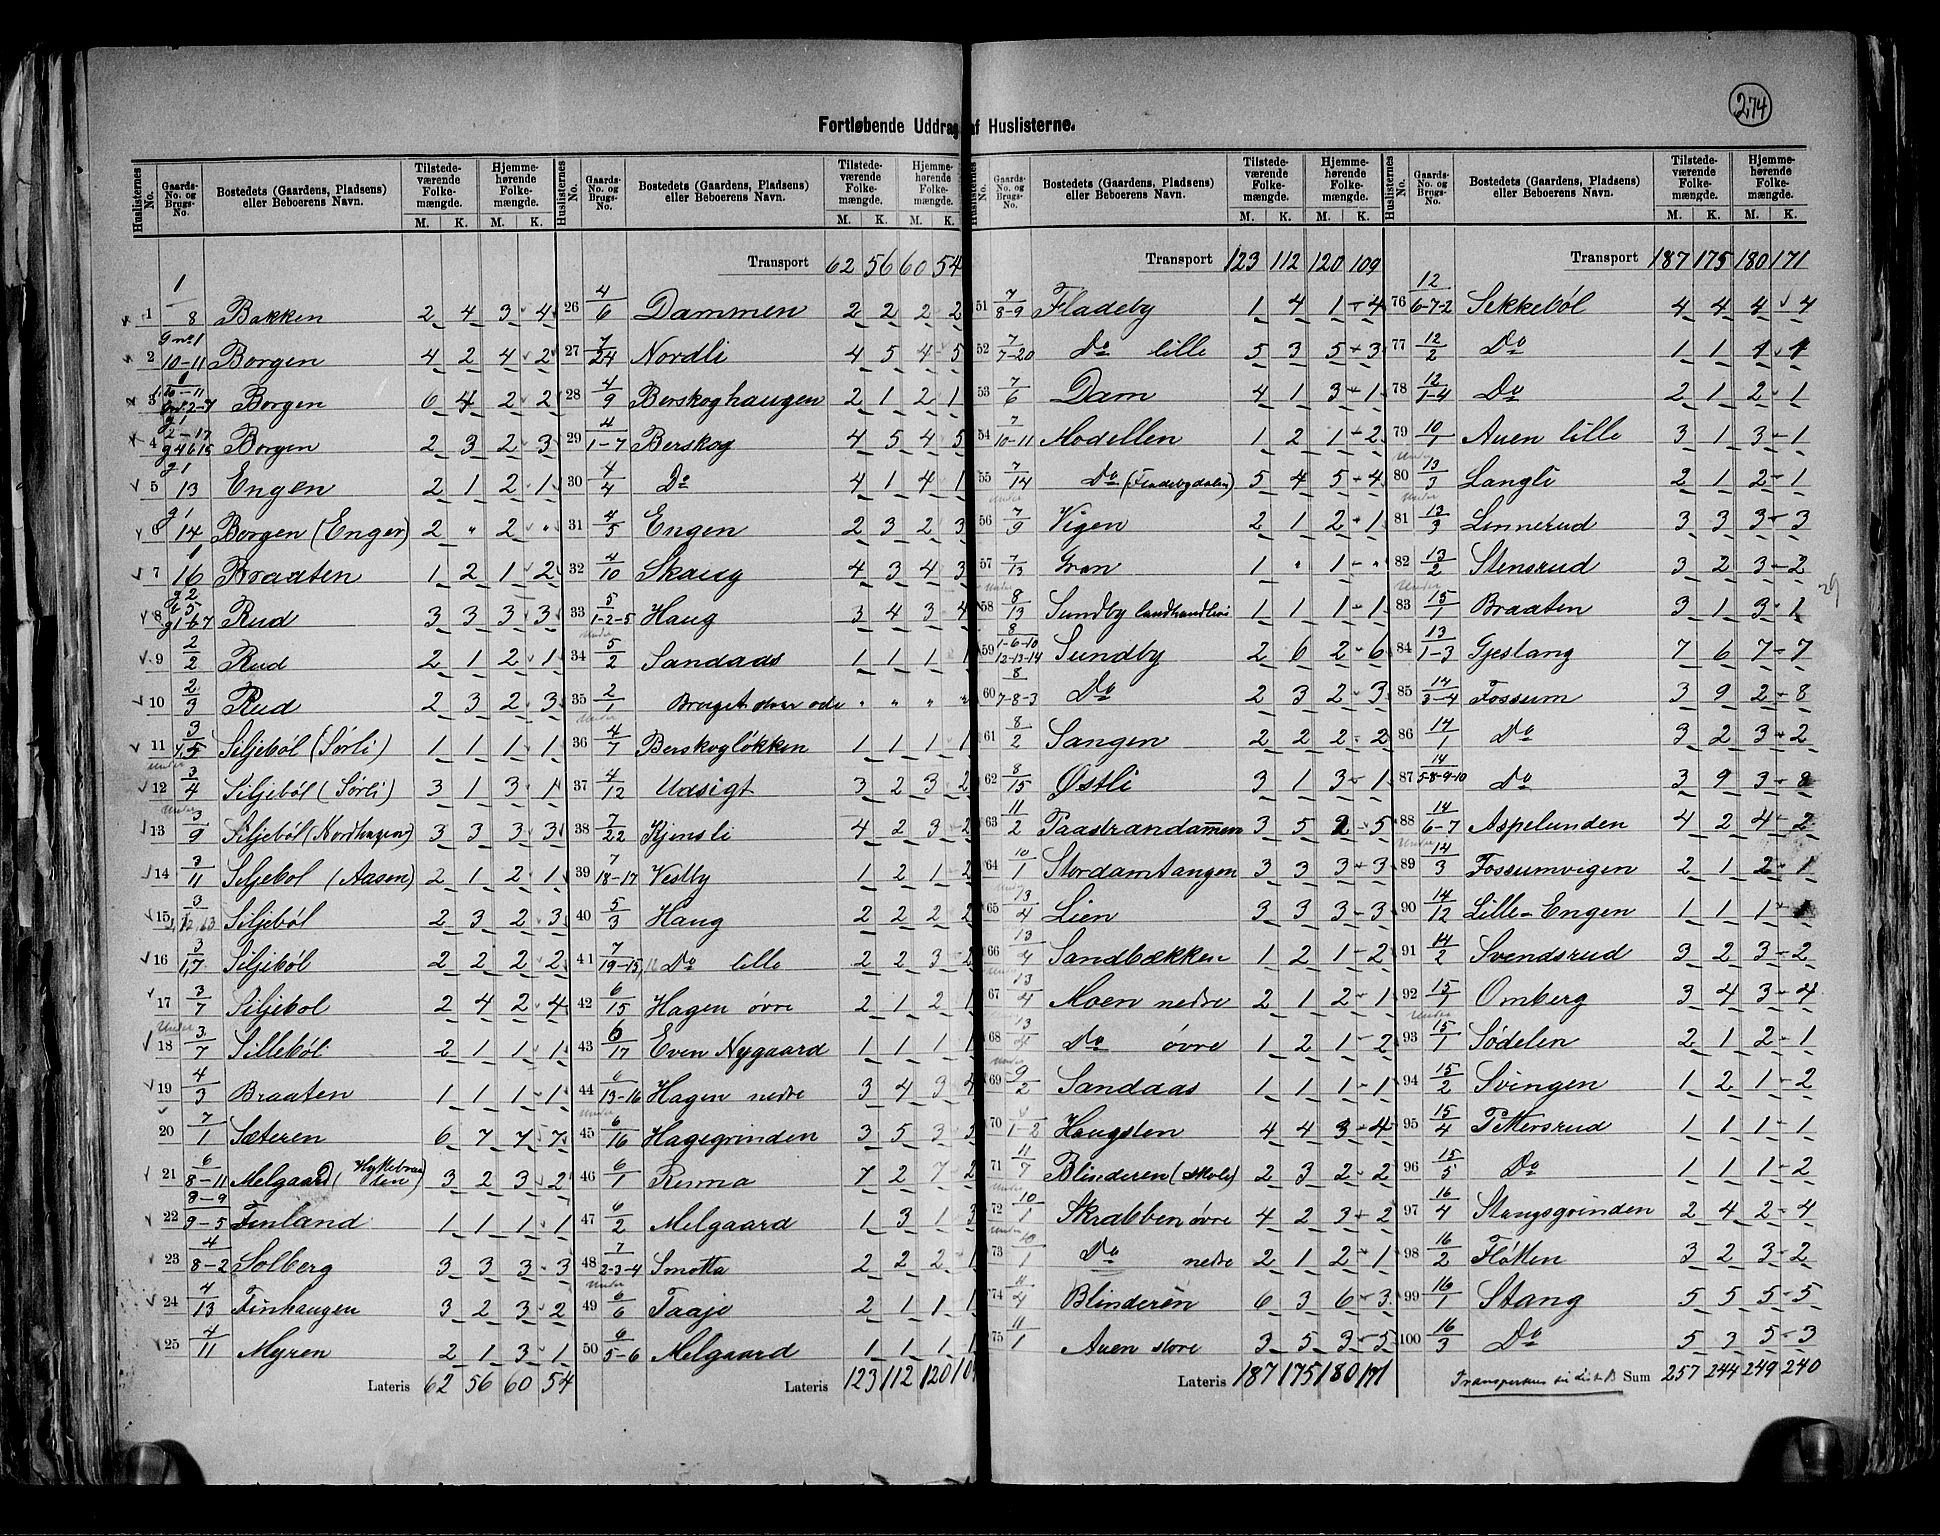 274
Fortløbende Uddrag af Huslisterne.
Huslisternes No. Gaards-No. og Brugs-No. Bostedets (Gaardens, Pladsens) eller Beboerens Navn. Tilstedeværende Folkemængde. M. K. Hjemmehørende Folkemængde. M. K.
1 1/8 Bakken 2 4 3 4
2 g no 1 10-11 Borgen 4 2 4 2
3 Borgen 6 4 2 2
4 Borgen 2 3 2 3
5 g 1 13 Engen 2 1 2 1
6 g 1 14 Borgen (Enger) 2 " 2 "
7 1/16 Braaten 1 2 1 2
8 Rud 3 3 3 3
9 2/2 Rud 2 1 2 1
10 2/3 Rud 2 3 2 3
11 3/5 Siljeböl (Sörli) 1 1 1 1
Under
12 3/4 Siljeböl (Sörli) 3 1 3 1
Under
13 3/9 Siljeböl (Nordhagen) 3 3 3 3
14 3/11 Siljebol (Aasen) 2 1 2 1
15 Siljeböl 2 3 2 3
16 3/1,7 Siljeböl 2 2 2 2
17 3/7 Siljebol 2 4 2 4
Under
18 3/7 Silleböl 2 1 1 1
19 4/3 Braaten 1 1 1 1
20 7/1 Sæteren 6 7 7 7
21 6/8-11 Melgaard 3 2 3 2
22 8-9/9-5 Finland 1 1 1 1
23 4/8-2 Solberg 3 3 3 3
24 4/13 Finhaugen 3 2 3 2
25 4/11 Myren 2 1 3 1
Lateris 62 56 60 54
Huslisternes No. Gaards-No. og Brugs-No. Bostedets (Gaardens, Pladsens) eller Beboerens Navn. Tilstedeværende Folkemængde. M. K. Hjemmehørende Folkemængde. M. K.
Transport 62 56 60 54
26 4/6 Dammen 2 2 2 2
27 7/24 Nordli 4 5 4 5
28 4/9 Berskoghaugen 2 1 2 1
29 4/1-7 Berskog 4 5 4 5
30 4/4 Do 4 1 4 1
31 4/5 Engen 2 3 2 3
32 4/10 Skaug 4 3 4 3
33 5/1-2-5 Haug 3 4 3 4
Under
34 5/2 Sandaas 1 1 1 1
35 2/1 " " " "
Under
36 4/7 Berskoglökken 1 1 1 1
37 4/12 Udsigt 3 2 3 2
38 7/22 Kjensli 4 2 3 2
39 7/18-17 Vestby 1 2 1 2
40 5/3 Haug 2 2 2 2
41 7/19-15 Do lille 2 2 3 2
42 6/15 Hagen övre 2 1 2 1
43 6/17 Even Nygaard 1 1 1 1
44 6/13-16 Hagen nedre 3 4 3 4
Under
45 6/16 Hagegrinden 3 5 3
46 6/1 Renna 7 2 7 2
47 6/2 Melgaard 1 3 1 3
48 7/2-3-4 Smotta 2 2 2 1
Under
49 6/6 Taaje 2 1 1 1
50 6/5-6 Melgaard 1 1 1 1
Lateris 123 112 120
Huslisternes No. Gaards-No. og Brugs-No. Bostedets (Gaardens, Pladsens) eller Beboerens Navn. Tilstedeværende Folkemængde. M. K. Hjemmehørende Folkemængde. M. K.
Transport 123 112 120 109
51 7/8-9 Fladeby 1 4 1 4
52 7/7-20 Do lille 5 3 5 3
53 7/6 Dam 4 1 3 1
54 7/10-11 Modellen 1 2 1 2
55 7/14 Do (Fladebydalen) 5 4 5 4
Under
56 7/9 Vigen 2 1 2 1
57 7/13 Gran 1 " 1 "
Under
58 8/13 Sundby landhandleri 1 1 1 1
59 8/1-6-10 12-13-14 Sundby 2 6 2 6
60 8/7-8-3 Do 2 3 2 3
61 8/2 Sangen 2 2 2 2
62 8/15 Østli 3 1 3 1
63 11/2 Taastrandammen 3 5 2 5
64 10/1 Stordamtangen 3 3 3 3
Under
65 13/4 Lien 3 3 3 3
66 13/4 Sandbækken 1 2 1 2
67 13/4 Moen nedre 2 1 2 1
68 13/4 Do övre 1 2 1 2
Under
69 9/2 Sandaas 1 1 1 1
70 9/1-2 Haugsten 4 4 3 4
71 11/7 Blinderen (skole) 2 3 2 2
Under
72 10/1 Skrabben övre 4 2 3 2
Under
73 10/1 Do nedre 2 1 2 1
74 11/4 Blinderen 6 3 6 3
75 11/1 Auen store 3 5 3 5
Lateris 187 175 180 171
Huslisternes No. Gaards-No. og Brugs-No. Bostedets (Gaardens, Pladsens) eller Beboerens Navn. Tilstedeværende Folkemængde. M. K. Hjemmehørende Folkemængde. M. K.
Transport 187 175 180 171
76 12/6-7-2 Sekkeböl 4 4 4 4
77 12/2 Do 1 1 1 1
78 12/1-4 Do 2 1 2 1
79 10/1 Auen lille 3 1 3 1
Under
80 13/3 Langli 2 1 2 1
Under
81 13/3 Linnerud 3 3 3 3
82 13/2 Stensrud 3 2 3 2
Under
83 15/1 Braaten 3 1 3 1
29
84 13/1-3 Gjeslang 7 6 7 7
85 14/3-4 Fossum 3 9 2 8
86 14/1 Do 3 2 3 2
87 14/5-8-9-10 Do 3 9 3 8
88 14/6-7 Aspelunden 4 2 4 2
Under
89 14/3 Fossumvigen 2 1 2 1
90 14/12 Lille-Engen 1 1 1 1
91 14/2 Svendsrud 3 2 3 2
92 15/1 Omberg 3 4 3 4
Under
93 15/1 Södelen 2 1 2 1
94 15/2 Svingen 1 2 1 2
95 15/4 Pettersrud 1 1 1 1
96 15/5 Do 1 1 1 2
97 16/4 Stangsgrinden 2 4 2 4
98 16/2 Flötten 3 2 3 2
99 16/1 Stang 5 5 5 5
100 16/3 Do 5 3 5 3
Sum 257 244 249 240